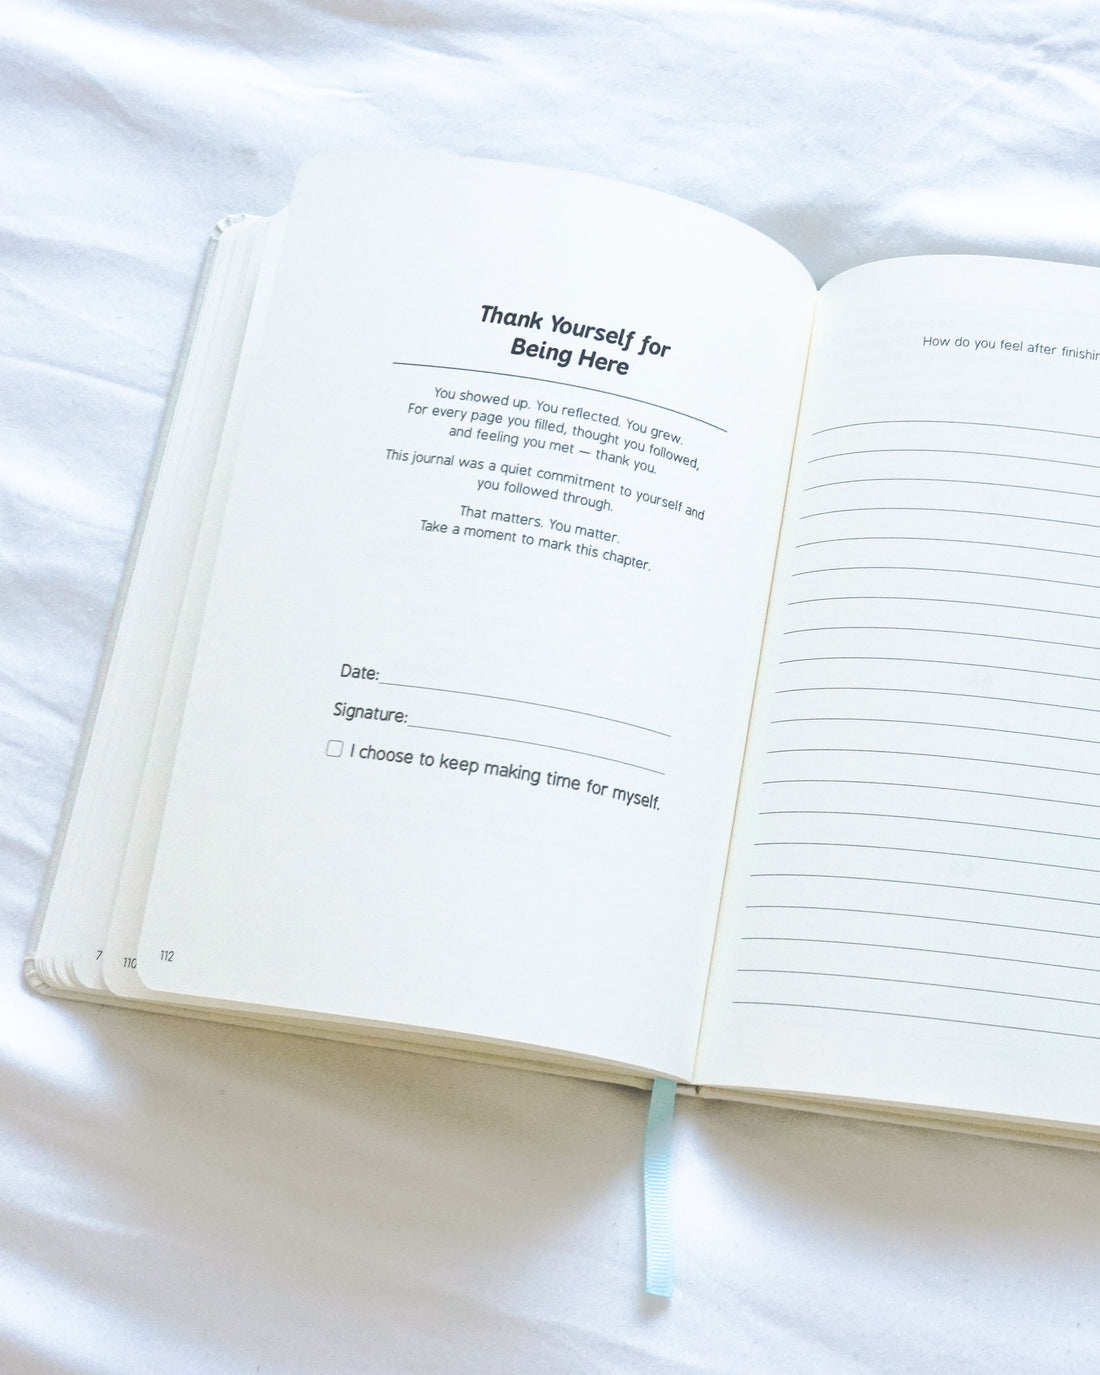 Thank Yourself for
Being Here
You showed up. You reflected. You grew.
For every page you filled, thought you followed,
and feeling you met — thank you.
This journal was a quiet commitment to yourself and
you followed through.
That matters. You matter.
Take a moment to mark this chapter.
Date:
Signature:
I choose to keep making time for myself.
7
110
112
How do you feel after